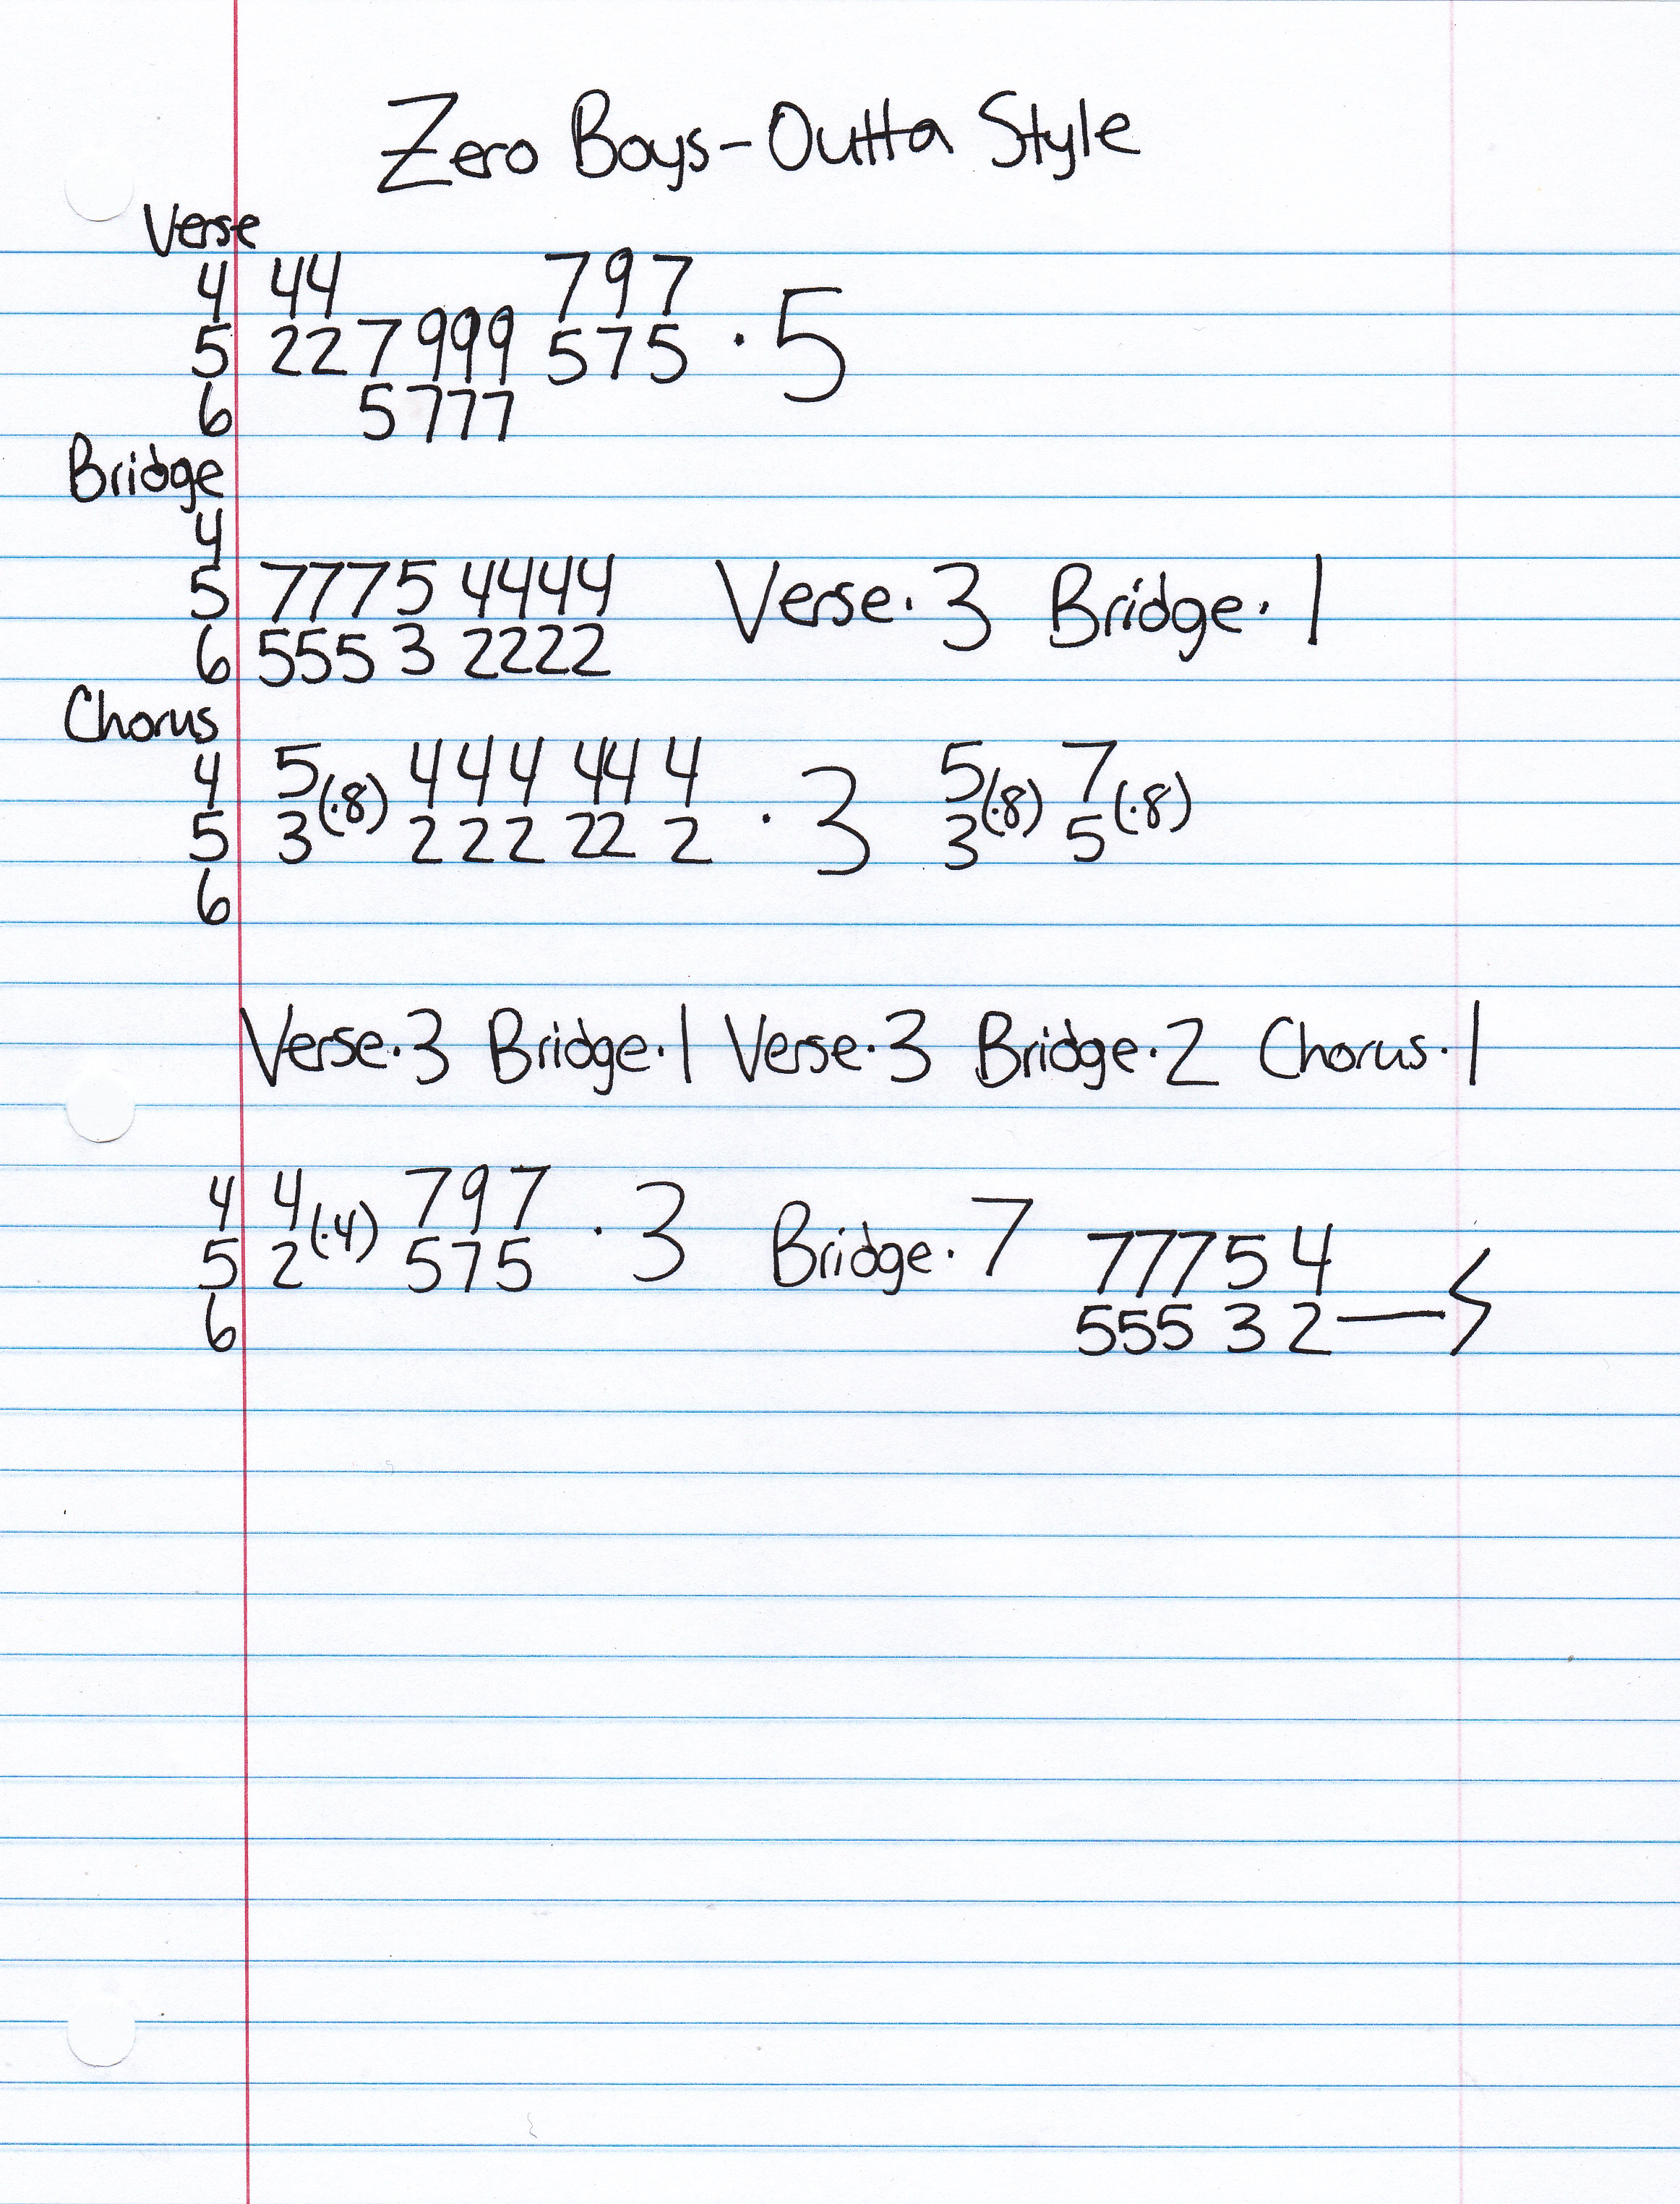 Zero Boys - Outta Style
Verse
4 44 797
5 227999 575 · 5
6 5777
Bridge
4
5 7775 4444 Verse · 3 Bridge · 1
6 555 3 2222
Chorus
4 5 (·8) 4 4 4 44 4 · 3 5 (·8) 7 (·8)
5 3 2 2 2 22 2 3 5
6
Verse · 3 Bridge · 1 Verse · 3 Bridge · 2 Chorus · 1
4 4 (·4) 797 · 3 Bridge · 7 7775 4
5 2 575 555 3 2
6